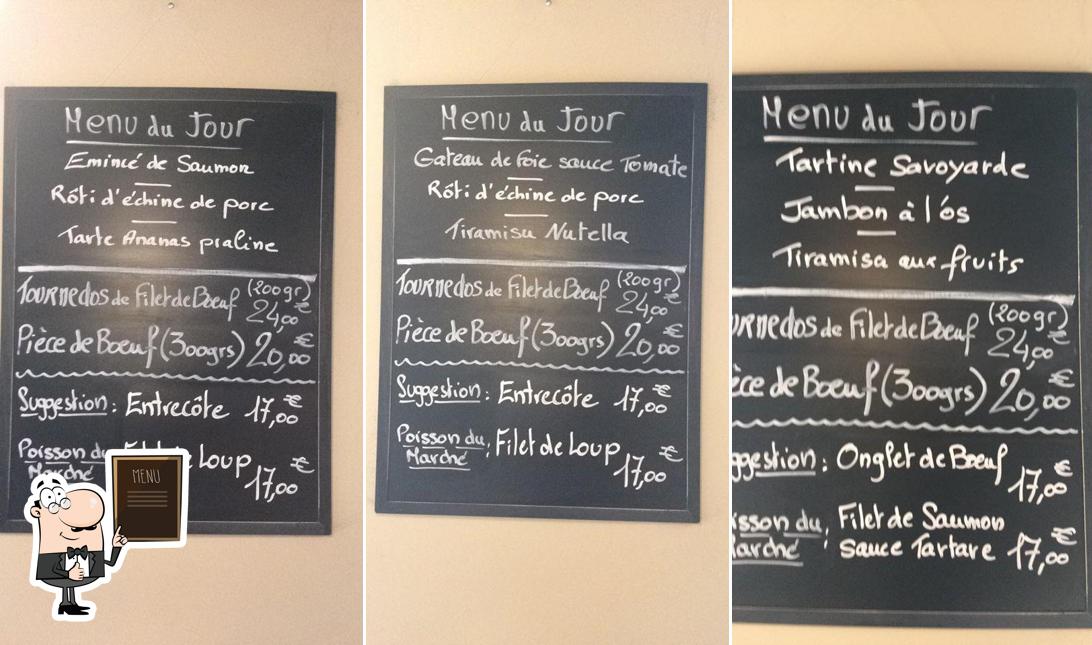 Menu du Jour
Emincé de Saumon
Rôti d'échine de porc
Tarte Ananas praline
Tournedos de Filet de Boeuf (200gr) 24,00 €
Pièce de Boeuf (300grs) 20,00 €
Suggestion : Entrecôte 17,00 €
Poisson du
Marché Loup 17,00 €
MENU
Menu du Jour
Gateau de foie sauce Tomate
Rôti d'échine de porc
Tiramisu Nutella
Tournedos de Filet de Boeuf (200gr) 24,00 €
Pièce de Boeuf (300grs) 20,00 €
Suggestion : Entrecôte 17,00 €
Poisson du
Marché : Filet de Loup 17,00 €
Menu du Jour
Tartine Savoyarde
Jambon à l'ós
Tiramisa aux fruits
ournedos de Filet de Boeuf (200gr) 24,00 €
èce de Boeuf (300grs) 20,00 €
ggestion : Onglet de Boeuf 17,00 €
isson du : Filet de Saumon
arché sauce Tartare 17,00 €